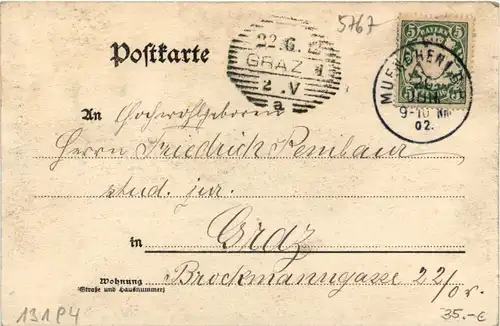 5767
Postkarte
22.6.
GRAZ 1
2 .V
a
BAYERN
5 5
5 5
MUENCHEN
9-10 NM
02.
An Hochwohlgeboren
Herrn Friedrich Pembaur
stud. jur.
in Graz
Wohnung
(Straße und Hausnummer)
Brockmanngasse 22/
131P4
35.-€